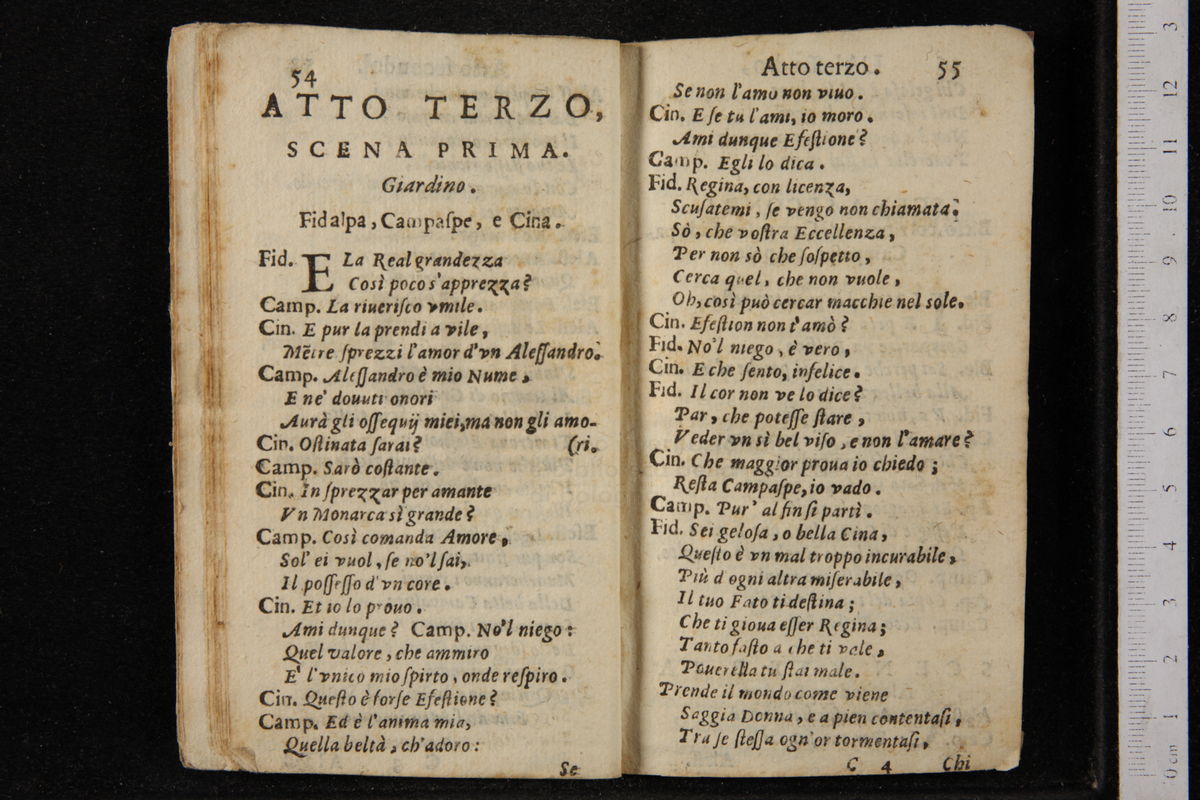 54
ATTO TERZO,
SCENA PRIMA.
Giardino.
Fidalpa, Campaſpe, e Cina.
Fid. E La Real grandezza
Così poco s'apprezza?
Camp. La riueriſco vmile.
Cin. E pur la prendi a vile,
Mẽtre ſprezzi l'amor d'vn Aleſſandro.
Camp. Aleſſandro è mio Nume,
E ne' douuti onori
Aurà gli oſſequij miei, ma non gli amo-
Cin. Oſtinata ſarai? (ri.
Camp. Sarò coſtante.
Cin. In ſprezzar per amante
Vn Monarca sì grande?
Camp. Così comanda Amore,
Sol' ei vuol, ſe no'l ſai,
Il poſſeſſo d'vn core.
Cin. Et io lo prouo.
Ami dunque? Camp. No'l niego:
Quel valore, che ammiro
E' l'vnico mio ſpirto, onde reſpiro.
Cin. Queſto è forſe Efeſtione?
Camp. Ed è l'anima mia,
Quella beltà, ch'adoro:
Se
Atto terzo. 55
Se non l'amo non viuo.
Cin. E ſe tu l'ami, io moro.
Ami dunque Efeſtione?
Camp. Egli lo dica.
Fid. Regina, con licenza,
Scuſatemi, ſe vengo non chiamata:
Sò, che voſtra Eccellenza,
Per non sò che ſoſpetto,
Cerca quel, che non vuole,
Oh, così può cercar macchie nel sole.
Cin. Efeſtion non t'amò?
Fid. No'l niego, è vero,
Cin. E che ſento, infelice.
Fid. Il cor non ve lo dice?
Par, che poteſſe ſtare,
Veder vn sì bel viſo, e non l'amare?
Cin. Che maggior proua io chiedo;
Reſta Campaſpe, io vado.
Camp. Pur' al fin ſi partì.
Fid. Sei geloſa, o bella Cina,
Queſto è vn mal troppo incurabile,
Più d ogni altra miſerabile,
Il tuo Fato ti deſtina;
Che ti gioua eſſer Regina;
Tanto faſto a che ti vale,
Pouerella tu ſtai male.
Prende il mondo come viene
Saggia Donna, e a pien contentaſi,
Tra ſe ſteſſa ogn'or tormentaſi,
C 4 Chi
0 cm 1 2 3 4 5 6 7 8 9 10 11 12 3